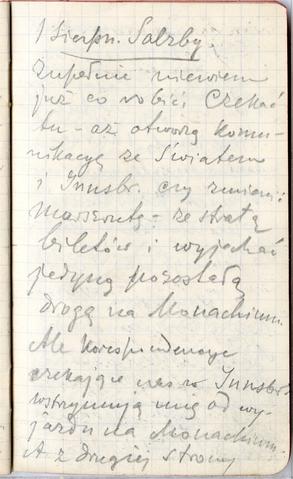 1 Sierpn. Salzbg.
Zupełnie niewiem
już co robić; Czekać
tu - aż otworzą komu-
nikacyę ze Światem
i Innsbr. czy zmienić
marszrutę - ze stratą
biletów i wyjechać
jedyną pozostałą
drogą na Monachium.
Ale korespondencye
czekające nas w Innsbr.
wstrzymują mię od wy-
jazdu na Monachium.
A z drugiej strony